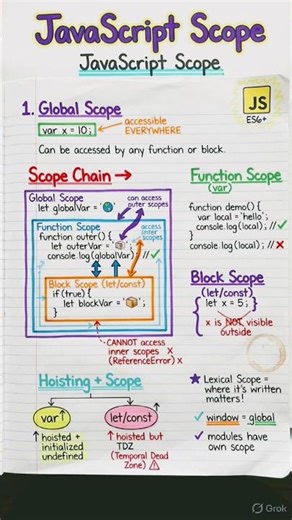 JavaScript Scope
JavaScript Scope
1. Global Scope
var x = 10;
accessible
EVERYWHERE
JS
ES6+
Can be accessed by any function or block.
Scope Chain →
Global Scope
let globalVar = '🌍'
can access
outer scopes
Function Scope
function outer() {
let outerVar = '📦'
console.log(globalVar) // ✓
access
inter
scopes
Block Scope (let/const)
if(true) {
let blockVar = '📦';
}
CANNOT ACCESS
inner scopes X
(ReferenceError) X
Function Scope
(var)
function demo() {
var local = 'hello';
console.log(local); // ✓
}
console.log(local); // ✗
Block Scope
(let/const)
let x = 5;
x is NOT visible
outside
Hoisting + Scope
var↑
↑ hoisted +
initialized
undefined
let/const↑
↑ hoisted but
TDZ
(Temporal Dead
Zone) ⚠
★ Lexical Scope =
where it's written
matters!
✓ window = global
✓ modules have
own scope
Grok